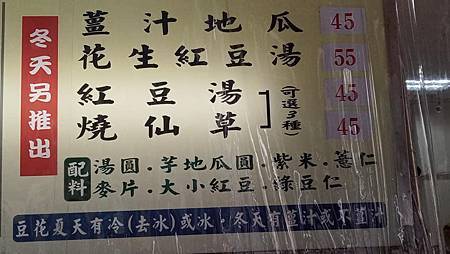 冬天另推出
薑汁地瓜 45
花生紅豆湯 55
紅豆湯 45
燒仙草 45
(可選3種)
配料 湯圓.芋地瓜圓.紫米.薏仁
麥片.大小紅豆.綠豆仁
豆花夏天有冷(去冰)或冰.冬天有薑汁或不薑汁